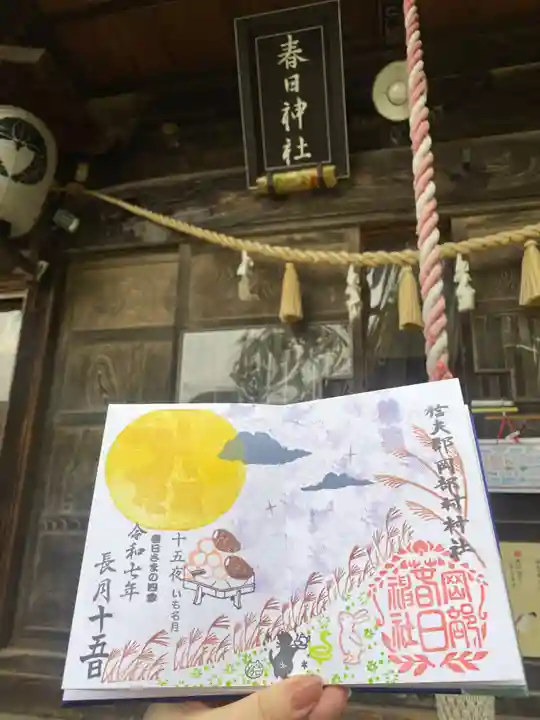 春日神社
信夫郡岡部村村社
岡部
春日
神社
十五夜 いも名月
春日さまの四季
令和七年
長月十五日